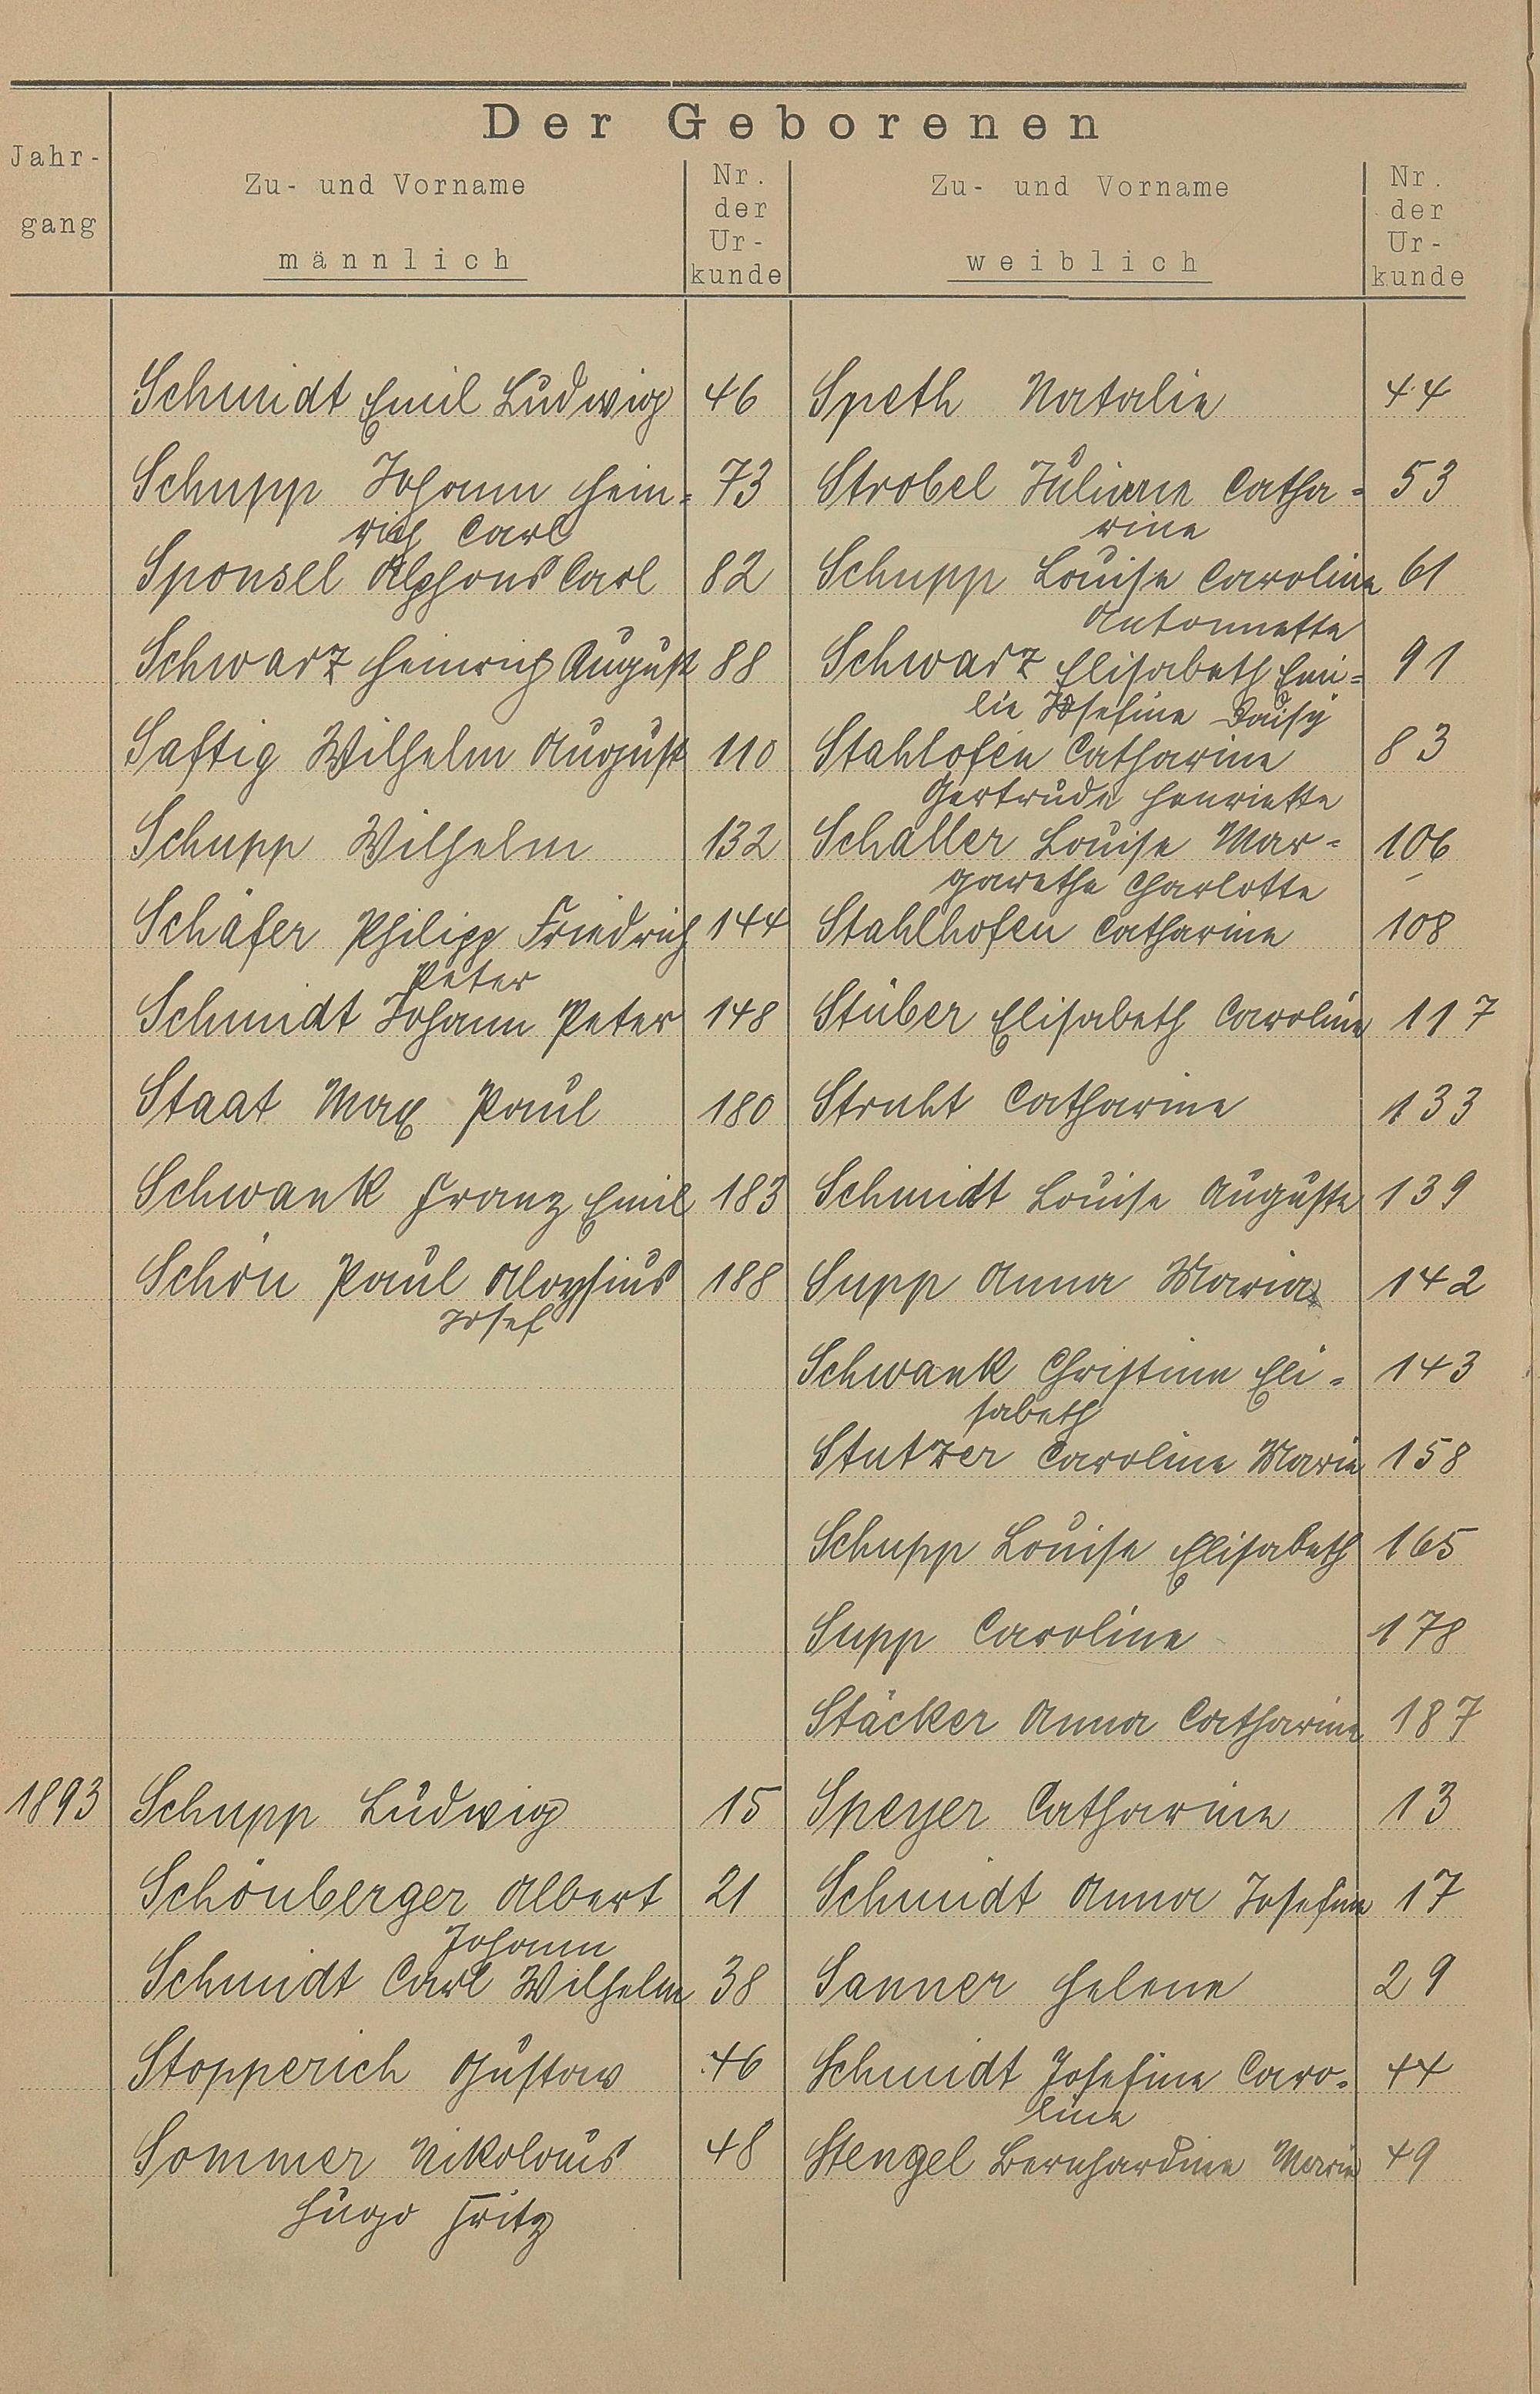 Der Geborenen
Jahr-
gang
Zu- und Vorname
männlich
Nr.
der
Ur-
kunde
Zu- und Vorname
weiblich
Nr.
der
Ur-
kunde
Schmidt Emil Ludwig 46 Speth Natalie 44
Schupp Johann Hein= 73 Strobel Juliane Catha= 53
rich Carl rine
Sponsel Alphons Carl 82 Schupp Louise Caroline 61
Antonnette
Schwarz Heinrich August 88 Schwarz Elisabeth Emi= 91
lie Josefine Daisy
Saftig Wilhelm August 110 Stahlofen Catharine 83
Gertrude Henriette
Schupp Wilhelm 132 Schaller Louise Mar= 106
garethe Charlotte
Schäfer Philipp Friedrich 144 Stahlhofen Catharine 108
Peter
Schmidt Johann Peter 148 Stüber Elisabeth Caroline 117
Staat Max Paul 180 Struht Catharine 133
Schwank Franz Emil 183 Schmidt Louise Auguste 139
Schön Paul Aloysius 188 Supp Anna Maria 142
Josef
Schwank Christine Eli= 143
sabeth
Stutzer Caroline Marie 158
Schupp Louise Elisabeth 165
Supp Caroline 178
Stäcker Anna Catharine 187
1893 Schupp Ludwig 15 Speyer Catharine 13
Schönberger Albert 21 Schmidt Anna Josefine 17
Johann
Schmidt Carl Wilhelm 38 Sanner Helene 29
Stopperich Gustav 46 Schmidt Josefine Caro= 44
line
Sommer Nikolaus 48 Stengel Bernhardine Marie 49
Hugo Fritz